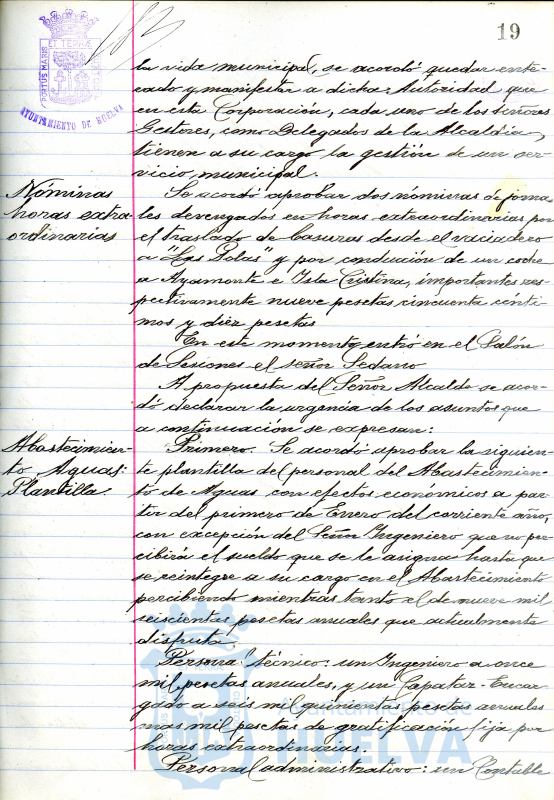 19
PORTUS MARIS ET TERRAE
AYUNTAMIENTO DE HUELVA
la vida municipal, se acordó quedar ente-
rado y manifestar a dicha Autoridad que
en esta Corporación, cada uno de los señores
Gestores, como Delegados de la Alcaldía,
tienen a su cargo la gestión de un ser-
vicio municipal.
Nóminas
horas extra-
ordinarias
Se acordó aprobar dos nóminas de jorna-
les devengados en horas extraordinarias por
el traslado de basuras desde el vaciadero
a "Las Polas" y por conducción de un coche
a Ayamonte e Isla Cristina, importantes res-
pectivamente nueve pesetas cincuenta cénti-
mos y diez pesetas
En este momento entró en el Salón
de Sesiones el señor Sedano
A propuesta del Señor Alcalde se acor-
dó declarar la urgencia de los asuntos que
a continuación se expresan:
Abastecimien-
to Aguas:
Plantilla.
Primero. Se acordó aprobar la siguien-
te plantilla del personal del Abastecimien-
to de Aguas con efectos económicos a par-
tir del primero de Enero del corriente año,
con excepción del Señor Ingeniero que no per-
cibirá el sueldo que se le asigna hasta que
se reintegre a su cargo en el Abastecimiento
percibiendo mientras tanto el de nueve mil
seiscientas pesetas anuales que actualmente
disfruta.
Personal técnico: un Ingeniero a once
mil pesetas anuales, y un Capataz-Encar-
gado a seis mil quinientas pesetas anuales
mas mil pesetas de gratificación fija por
horas extraordinarias.
Personal administrativo: un Contable
Ayuntamiento de
HUELVA